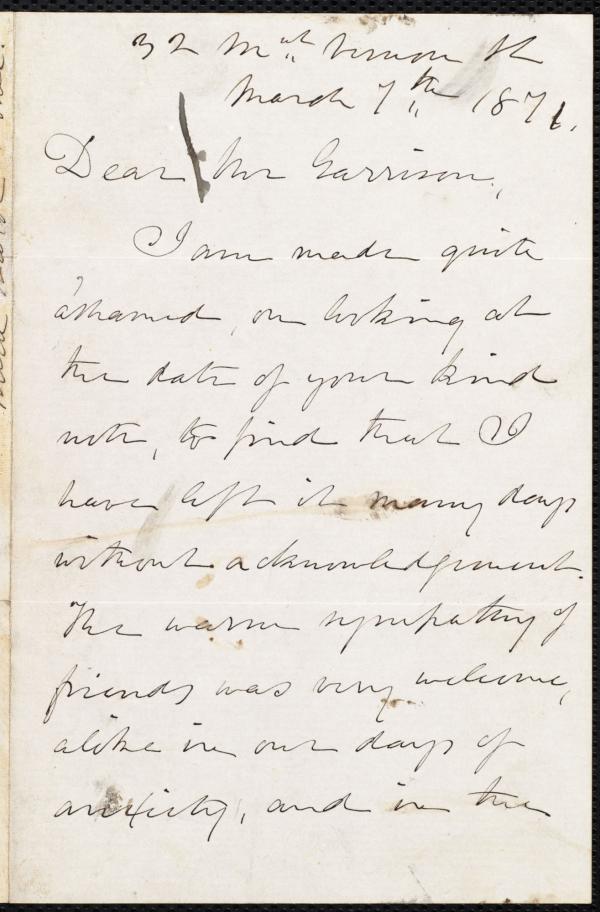 32 Mt Vernon St
March 7th 1871.
Dear Mr Garrison,
I am made quite
ashamed, on looking at
the date of your kind
note, to find that I
have left it many days
without acknowledgement.
The warm sympathy of
friends was very welcome,
alike in our days of
anxiety, and in the